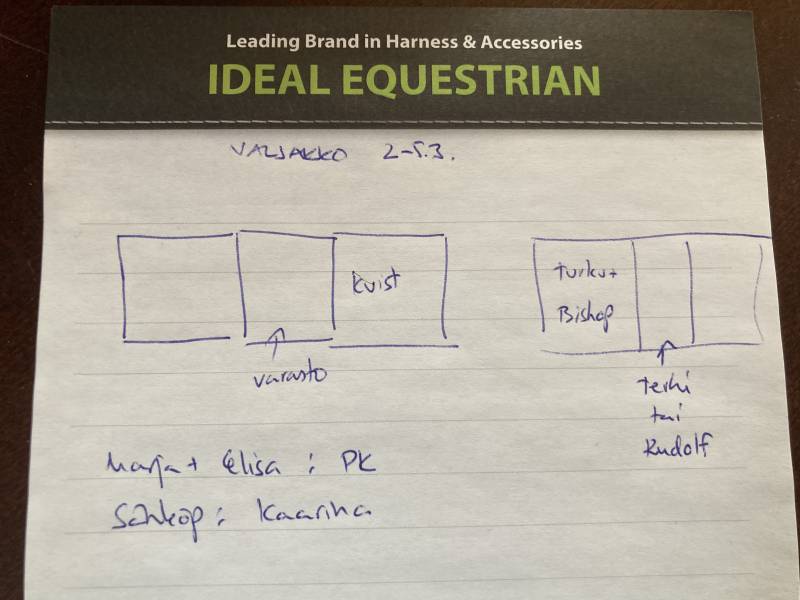 Leading Brand in Harness & Accessories
IDEAL EQUESTRIAN
VALJAKKO 2-5.3.
Kvist
varasto
turku+
Bishop
terhi
tai
Rudolf
Marja + Elisa : PK
Sähköp : Kaarina